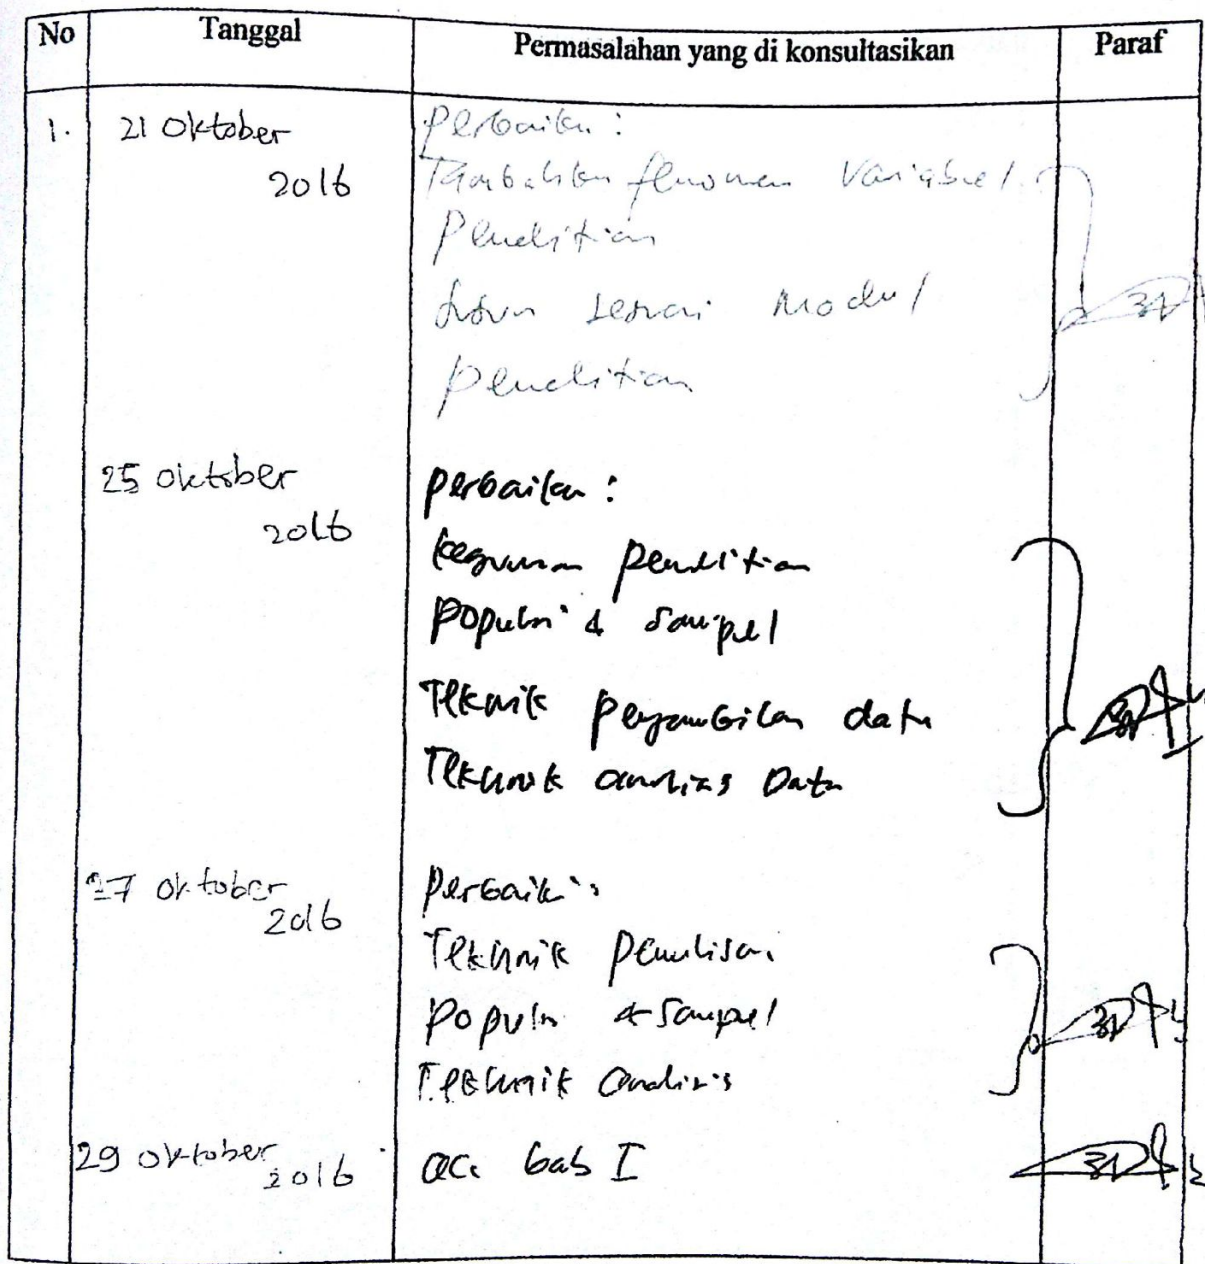 No Tanggal Permasalahan yang di konsultasikan Paraf
1. 21 Oktober perbaikan :
2016 Tambahkan fenomen Variabel
Penelitian
susun sesuai Modul
penelitian
25 oktober perbaikan :
2016 kegunaan penelitian
populasi & sampel
Teknik pengambilan data
Tekhnik analisis Data
27 oktober perbaiki :
2016 Tekhnik penulisan
populasi & sampel
Tekhnik analisis
29 oktober 2016 acc bab I